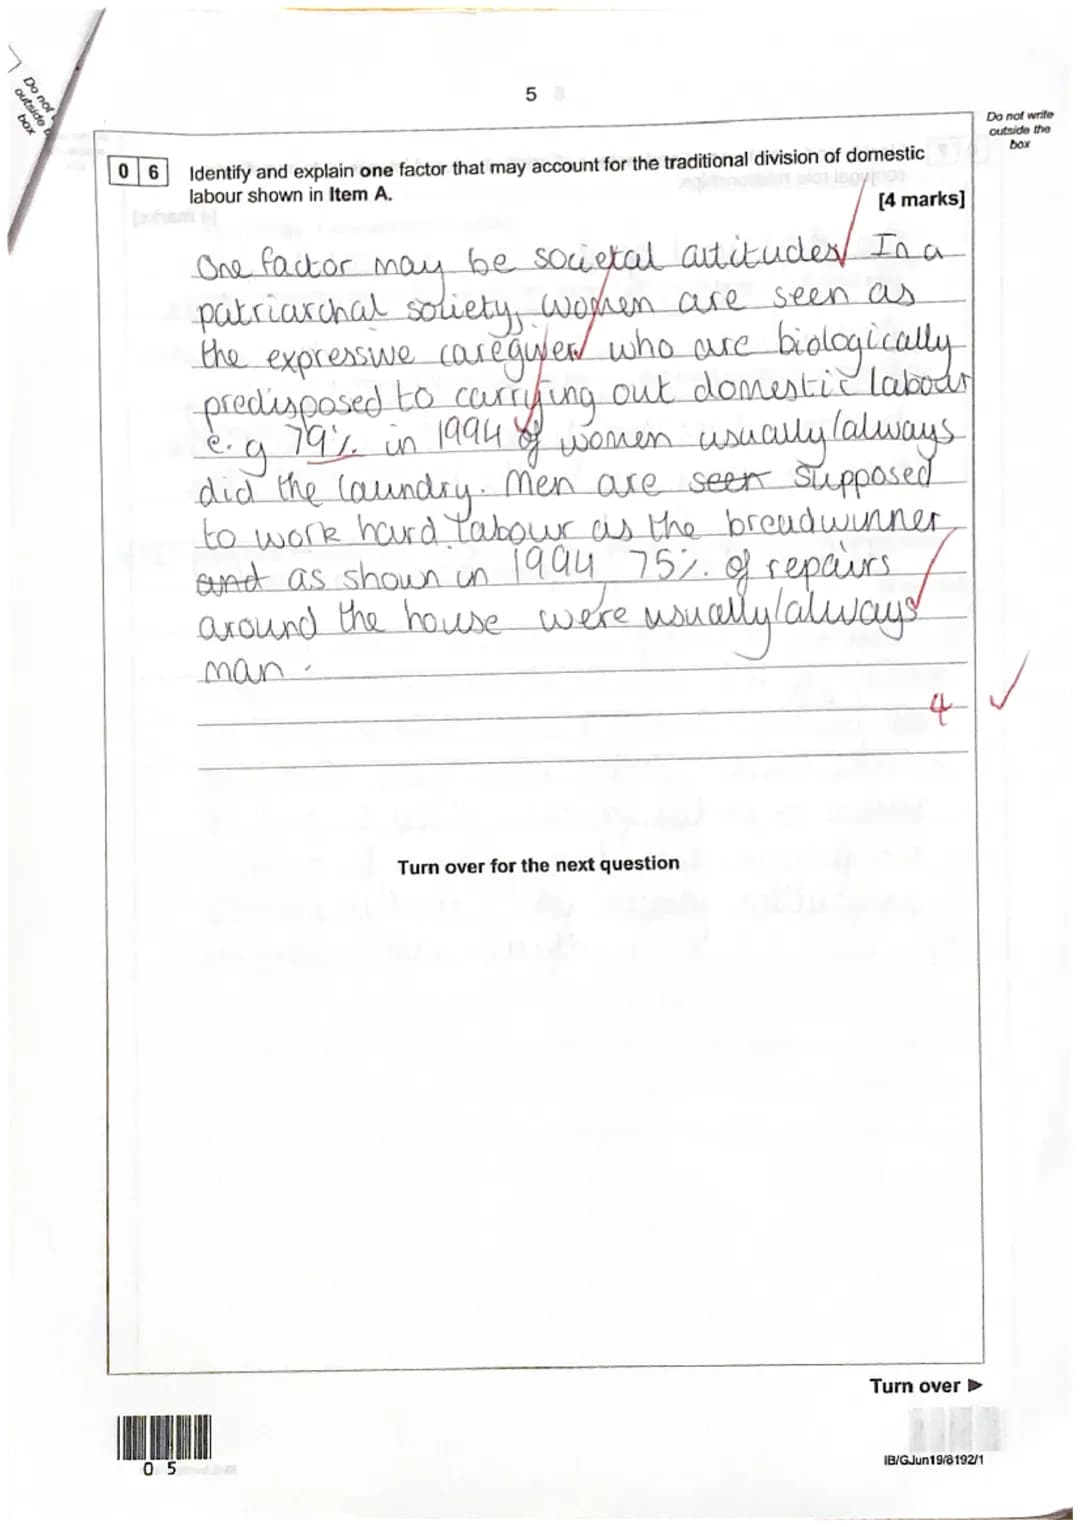 Do not
outside
box
5
Do not write
outside the
box
0 6 Identify and explain one factor that may account for the traditional division of domestic
labour shown in Item A.
[4 marks]
One factor may be societal attitudes. In a
patriarchal society, women are seen as
the expressive caregiver who are biologically
predisposed to carrying out domestic labour
e.g 79% in 1994 of women usually/always
did the laundry. Men are seen supposed
to work hard labour as the breadwinner
and as shown in 1994 75% of repairs
around the house were usually/always
man.
4
Turn over for the next question
Turn over ►
0 5
IB/G/Jun19/8192/1